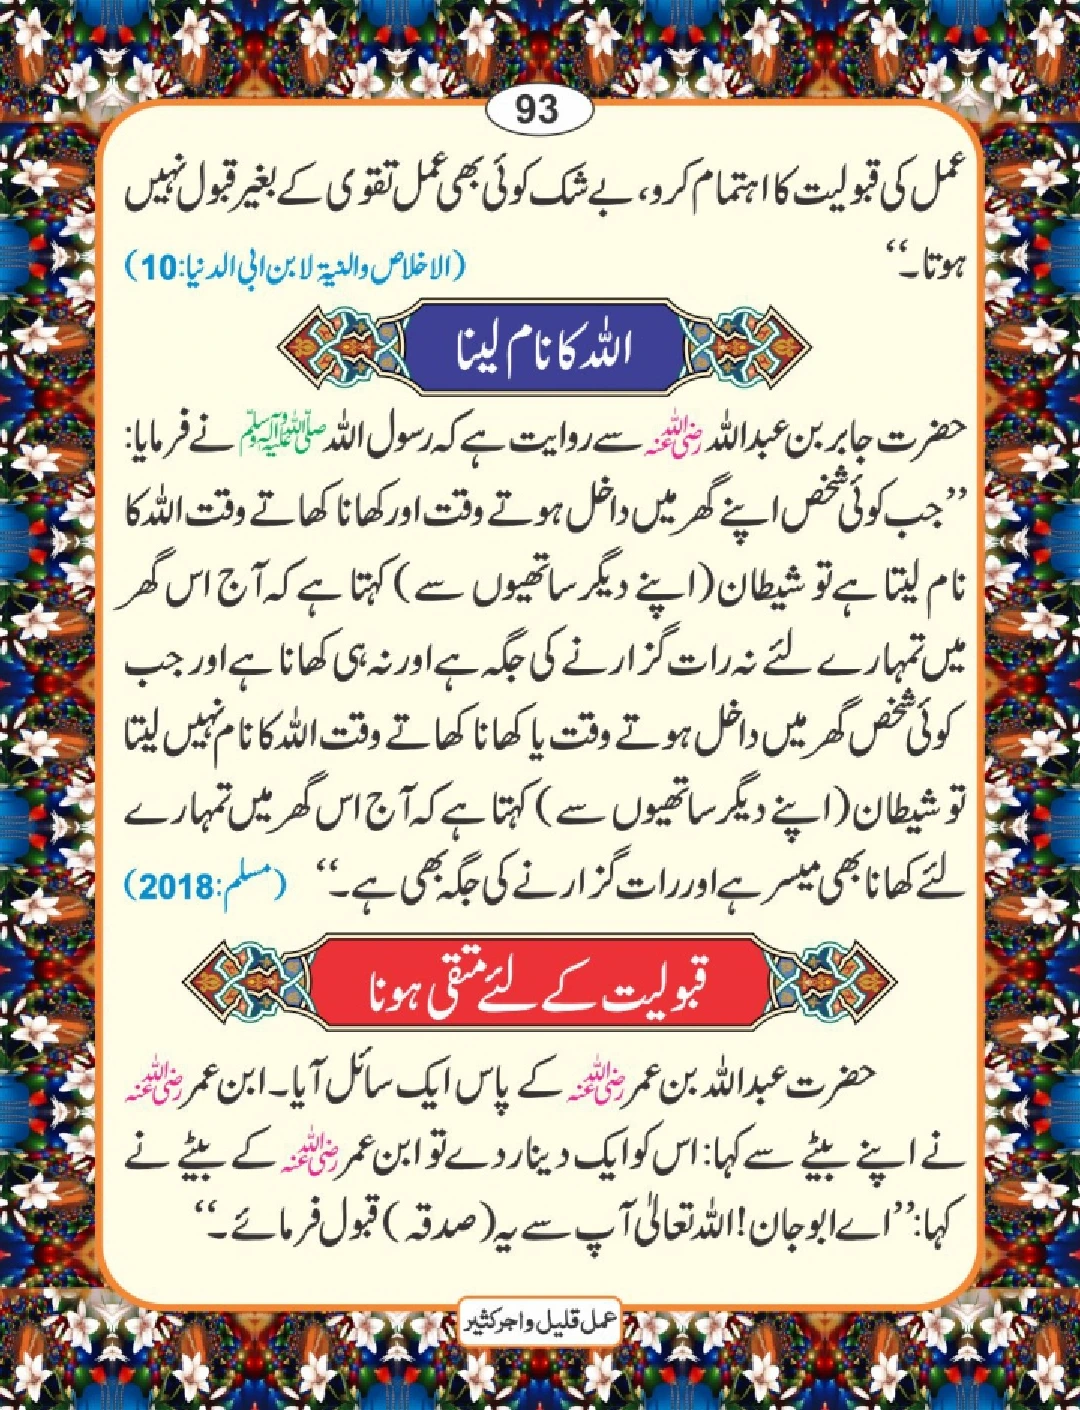 93
عمل کی قبولیت کا اہتمام کرو، بے شک کوئی بھی عمل تقوی کے بغیر قبول نہیں
ہوتا۔“ (الاخلاص والنیۃ لابن ابی الدنیا:10)
اللہ کا نام لینا
حضرت جابر بن عبداللہ رضی اللہ عنہ سے روایت ہے کہ رسول اللہ صلی اللہ علیہ وآلہ وسلم نے فرمایا:
”جب کوئی شخص اپنے گھر میں داخل ہوتے وقت اور کھانا کھاتے وقت اللہ کا
نام لیتا ہے تو شیطان (اپنے دیگر ساتھیوں سے) کہتا ہے کہ آج اس گھر
میں تمہارے لئے نہ رات گزارنے کی جگہ ہے اور نہ ہی کھانا ہے اور جب
کوئی شخص گھر میں داخل ہوتے وقت یا کھانا کھاتے وقت اللہ کا نام نہیں لیتا
تو شیطان (اپنے دیگر ساتھیوں سے) کہتا ہے کہ آج اس گھر میں تمہارے
لئے کھانا بھی میسر ہے اور رات گزارنے کی جگہ بھی ہے۔“ (مسلم:2018)
قبولیت کے لئے متقی ہونا
حضرت عبداللہ بن عمر رضی اللہ عنہ کے پاس ایک سائل آیا۔ ابن عمر رضی اللہ عنہ
نے اپنے بیٹے سے کہا: اس کو ایک دینار دے تو ابن عمر رضی اللہ عنہ کے بیٹے نے
کہا: ”اے ابو جان! اللہ تعالیٰ آپ سے یہ (صدقہ) قبول فرمائے۔“
عمل قلیل و اجر کثیر